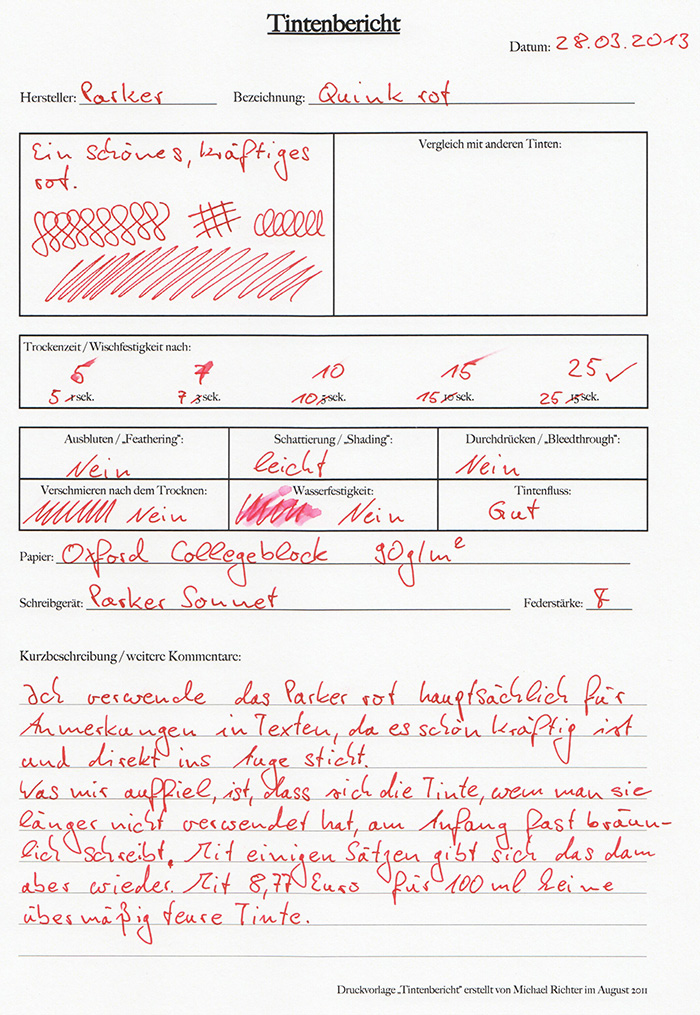 Tintenbericht
Datum: 28.03.2013
Hersteller: Parker Bezeichnung: Quink rot
Ein schönes, kräftiges
rot.
Vergleich mit anderen Tinten:
Trockenzeit / Wischfestigkeit nach:
5 7 10 15 25 ✓
5 sek. 7 sek. 10 sek. 15 sek. 25 sek.
Ausbluten / „Feathering": Schattierung / „Shading": Durchdrücken / „Bleedthrough":
Nein leicht Nein
Verschmieren nach dem Trocknen: Wasserfestigkeit: Tintenfluss:
Nein Nein Gut
Papier: Oxford Collegeblock 90g/m²
Schreibgerät: Parker Sonnet Federstärke: F
Kurzbeschreibung / weitere Kommentare:
Ich verwende das Parker rot hauptsächlich für
Anmerkungen in Texten, da es schön kräftig ist
und direkt ins Auge sticht.
Was mir auffiel, ist, dass sich die Tinte, wenn man sie
länger nicht verwendet hat, am Anfang fast bräun-
lich schreibt. Mit einigen Sätzen gibt sich das dann
aber wieder. Mit 8,77 Euro für 100 ml keine
übermäßig teure Tinte.
Druckvorlage „Tintenbericht" erstellt von Michael Richter im August 2011